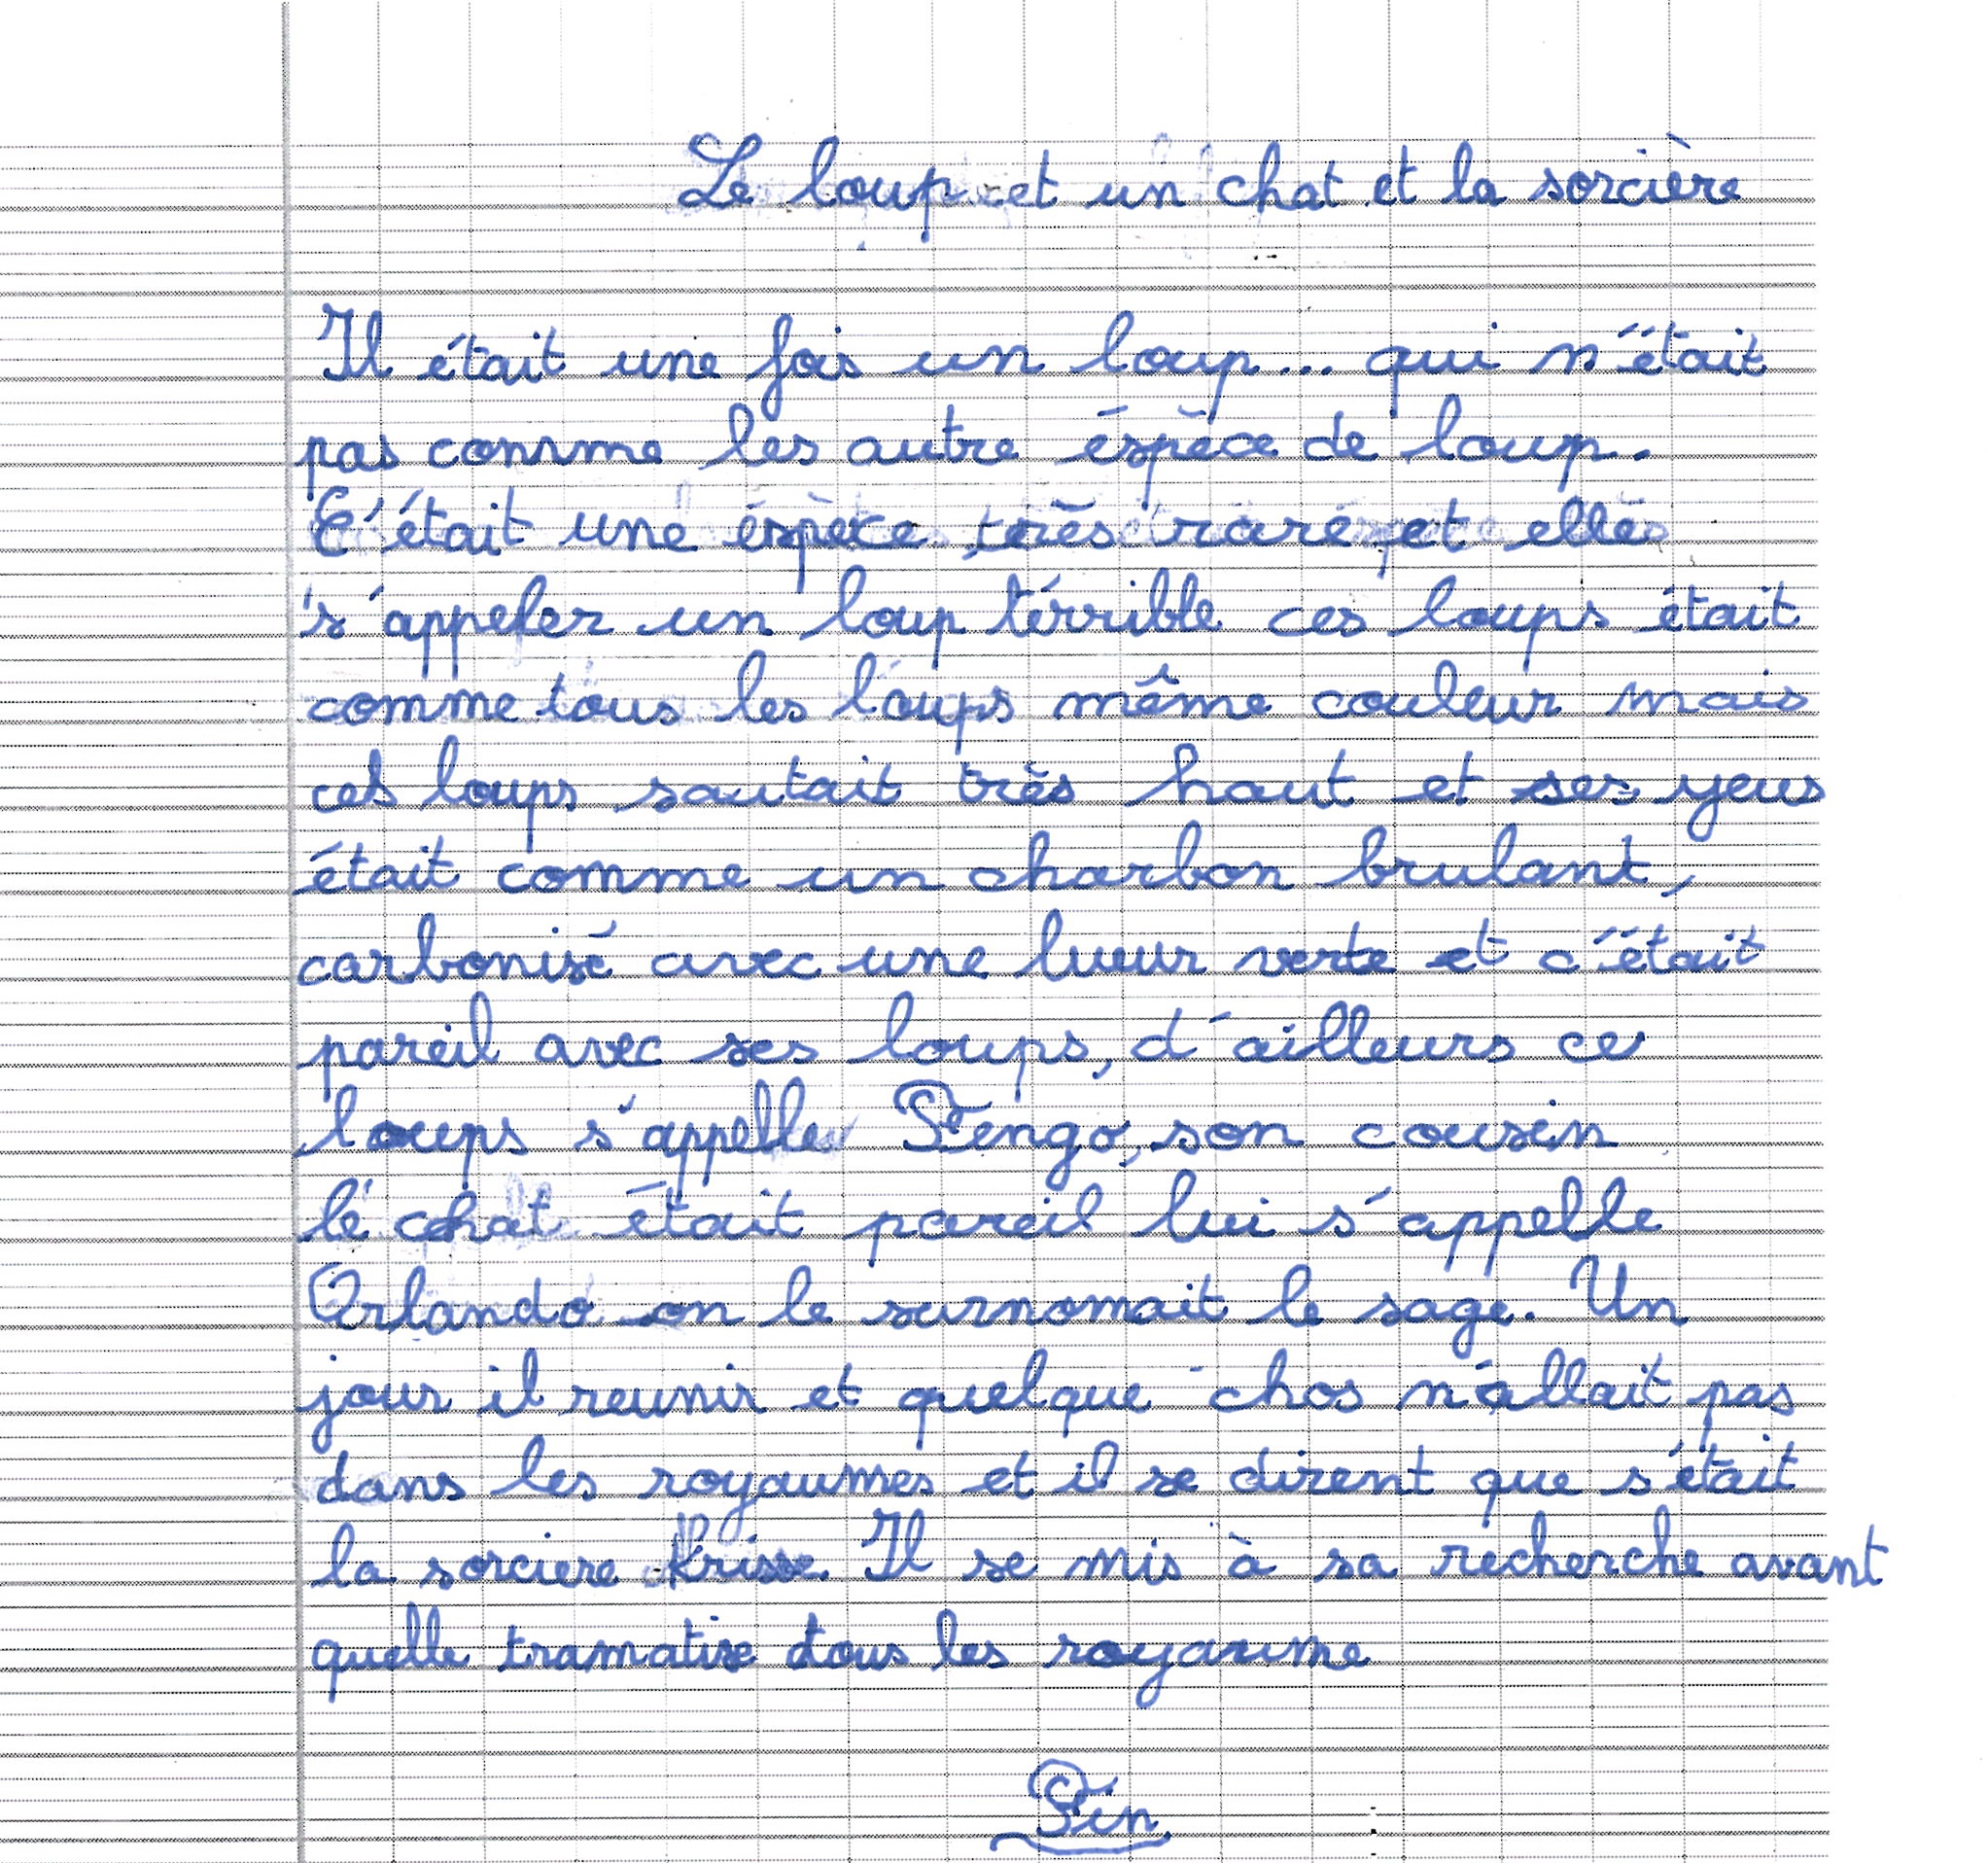 Le loup et un chat et la sorcière
Il était une fois un loup... qui n'était
pas comme les autre éspèce de loup.
C'était une éspèce très rare et elle
s'appeler un loup térrible ces loups était
comme tous les loups même couleur mais
ces loups sautait très haut et ses yeus
était comme un charbon brulant,
carbonisé avec une lueur verte et c'était
pareil avec ses loups, d'ailleurs ce
loups s'appelle Fengo, son cousin
le chat était pareil lui s'appelle
Orlando on le surnomait le sage. Un
jour il reunir et quelque chos n'allait pas
dans les royaumes et il se dirent que s'était
la sorciere Krisse. Il se mis à sa recherche avant
quelle tramatise tous les royaume
Fin